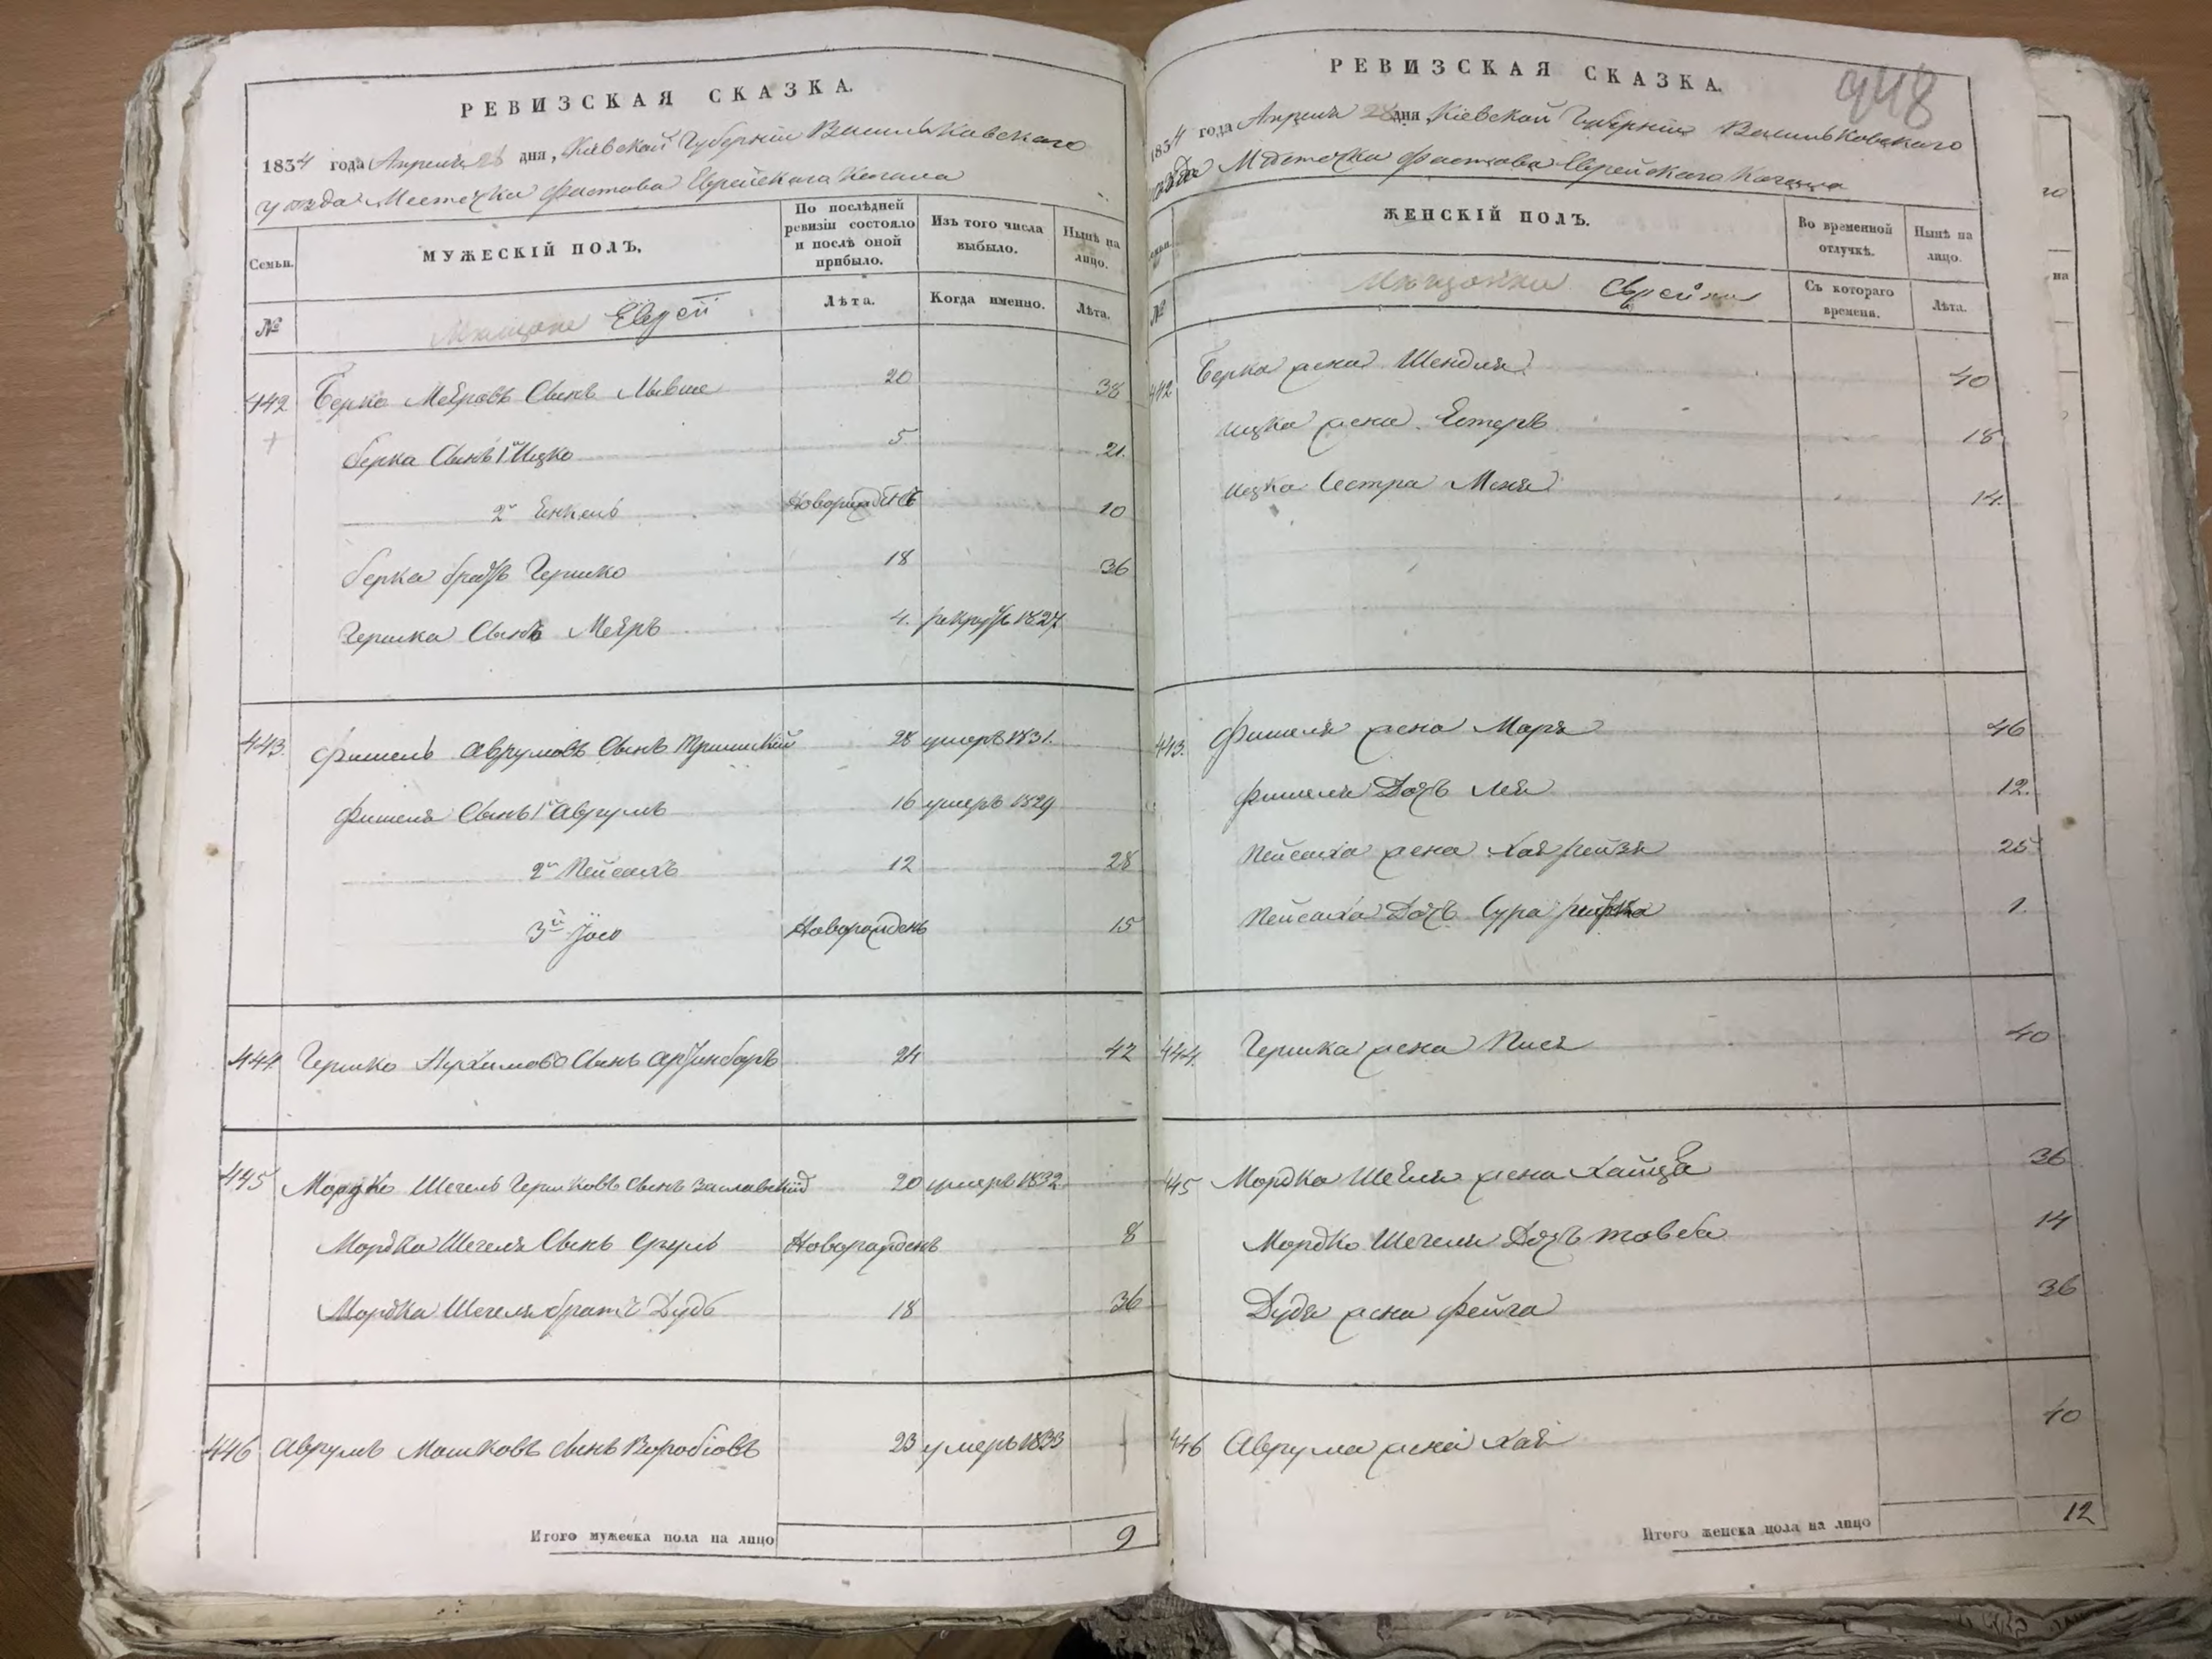 РЕВИЗСКАЯ СКАЗКА.
1834 года Апреля 28 дня, Кіевской Губерніи Васильковскаго
уѣзда Местечка Фастова Еврейскаго Кагала
Семьи.
МУЖЕСКІЙ ПОЛЪ.
По послѣдней ревизіи состояло и послѣ оной прибыло.
Изъ того числа выбыло.
Нынѣ на лицо.
№
Мѣщане Евреи
Лѣта.
Когда именно.
Лѣта.
442 Берко Меяровъ Сынъ 20 38
Берка Сынъ 1й Ицко 5 21.
2й Янкель Новорожденъ 10
Берка братъ Гершко 18 36
Гершка Сынъ Меяръ 4. рекрутъ 1827
443. Фишель Аврумовъ Сынъ 28 умеръ 1831.
Фишеля Сынъ 1й Аврумъ 16 умеръ 1829
2й Пейсахъ 12 28
3й Іосо Новорожденъ 15
444. Гершко Сынъ 24 42
445 Мордко Шегель Гершковъ Сынъ Заславскій 20 умеръ 1832
Мордка Шегеля Сынъ Сруль Новорожденъ 8
Мордка Шегеля братъ Дудь 18 36
446 Аврумъ Мошковъ Сынъ Воробіовъ 23 умеръ 1833
Итого мужеска пола на лицо 9
448
РЕВИЗСКАЯ СКАЗКА.
1834 года Апреля 28 дня Кіевской Губерніи Васильковскаго
уѣзда Местечка Фастова Еврейскаго Кагала
ЖЕНСКІЙ ПОЛЪ.
Во временной отлучкѣ.
Нынѣ на лицо.
№
Мѣщанки Еврейки
Съ котораго времени.
Лѣта.
442 Берка жена Шендля 40
Ицка жена Естеръ 18
Ицка Сестра Меня 14.
443. Фишеля жена Маря 46
Фишеля Дочь Лея 12.
Пейсаха жена Хая рейзя 25
Пейсаха Дочь Сура 1.
444. Гершка жена Пися 40
445 Мордка Шегеля жена 36
Мордко Шегеля Дочь товба 14
Дудя жена Фейга 36
446 Аврума жена Хая 40
Итого женска пола на лицо 12